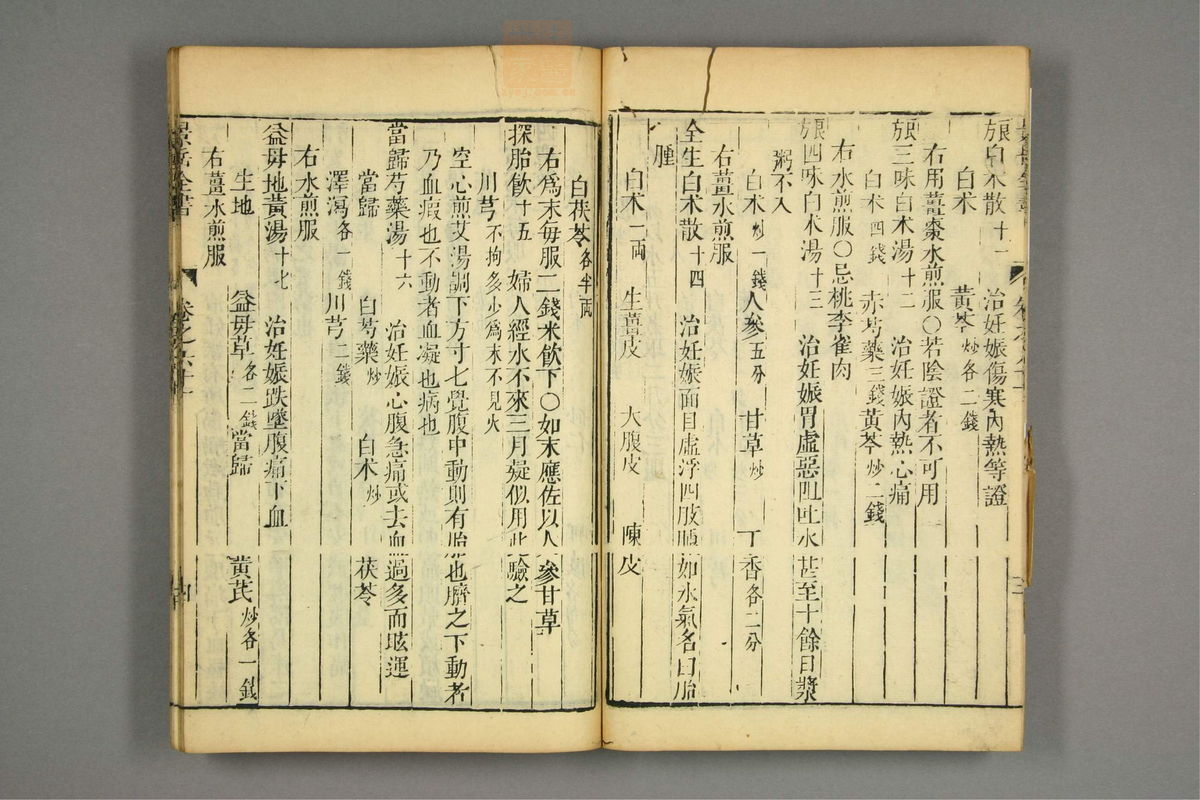 良方白术散十一　治妊娠傷寒內熱等證
白术　黃芩炒各二錢
右用薑棗水煎服○若陰證者不可用
良方三味白术湯十二　治妊娠內熱心痛
白术四錢　赤芍藥三錢　黃芩炒二錢
右水煎服○忌桃李雀肉
良方四味白术湯十三　治妊娠胃虛惡阻吐水甚至十餘日漿
粥不入
白术炒一錢　人參五分　甘草炒　丁香各二分
右薑水煎服
全生白术散十四　治妊娠面目虛浮四肢腫如水氣名曰胎
腫
白术一兩　生薑皮　大腹皮　陳皮
白茯苓各半兩
右爲末每服二錢米飲下○如末應佐以人參甘草
探胎飲十五　婦人經水不來三月疑似用此驗之
川芎不拘多少爲末不見火
空心煎艾湯調下方寸七覺腹中動則有胎也臍之下動者
乃血瘕也不動者血凝也病也
當歸芍藥湯十六　治妊娠心腹急痛或去血過多而眩運
當歸　白芍藥炒　白术炒　茯苓
澤瀉各一錢　川芎二錢
右水煎服
益母地黃湯十七　治妊娠跌墜腹痛下血
生地　益母草各二錢　當歸　黃芪炒各一錢
右薑水煎服
景岳全書　卷之六十一